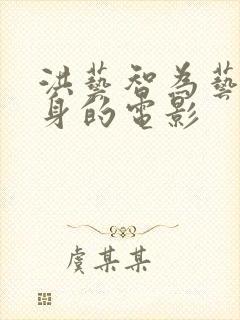 洪藝智為藝
身的電影
虞某某